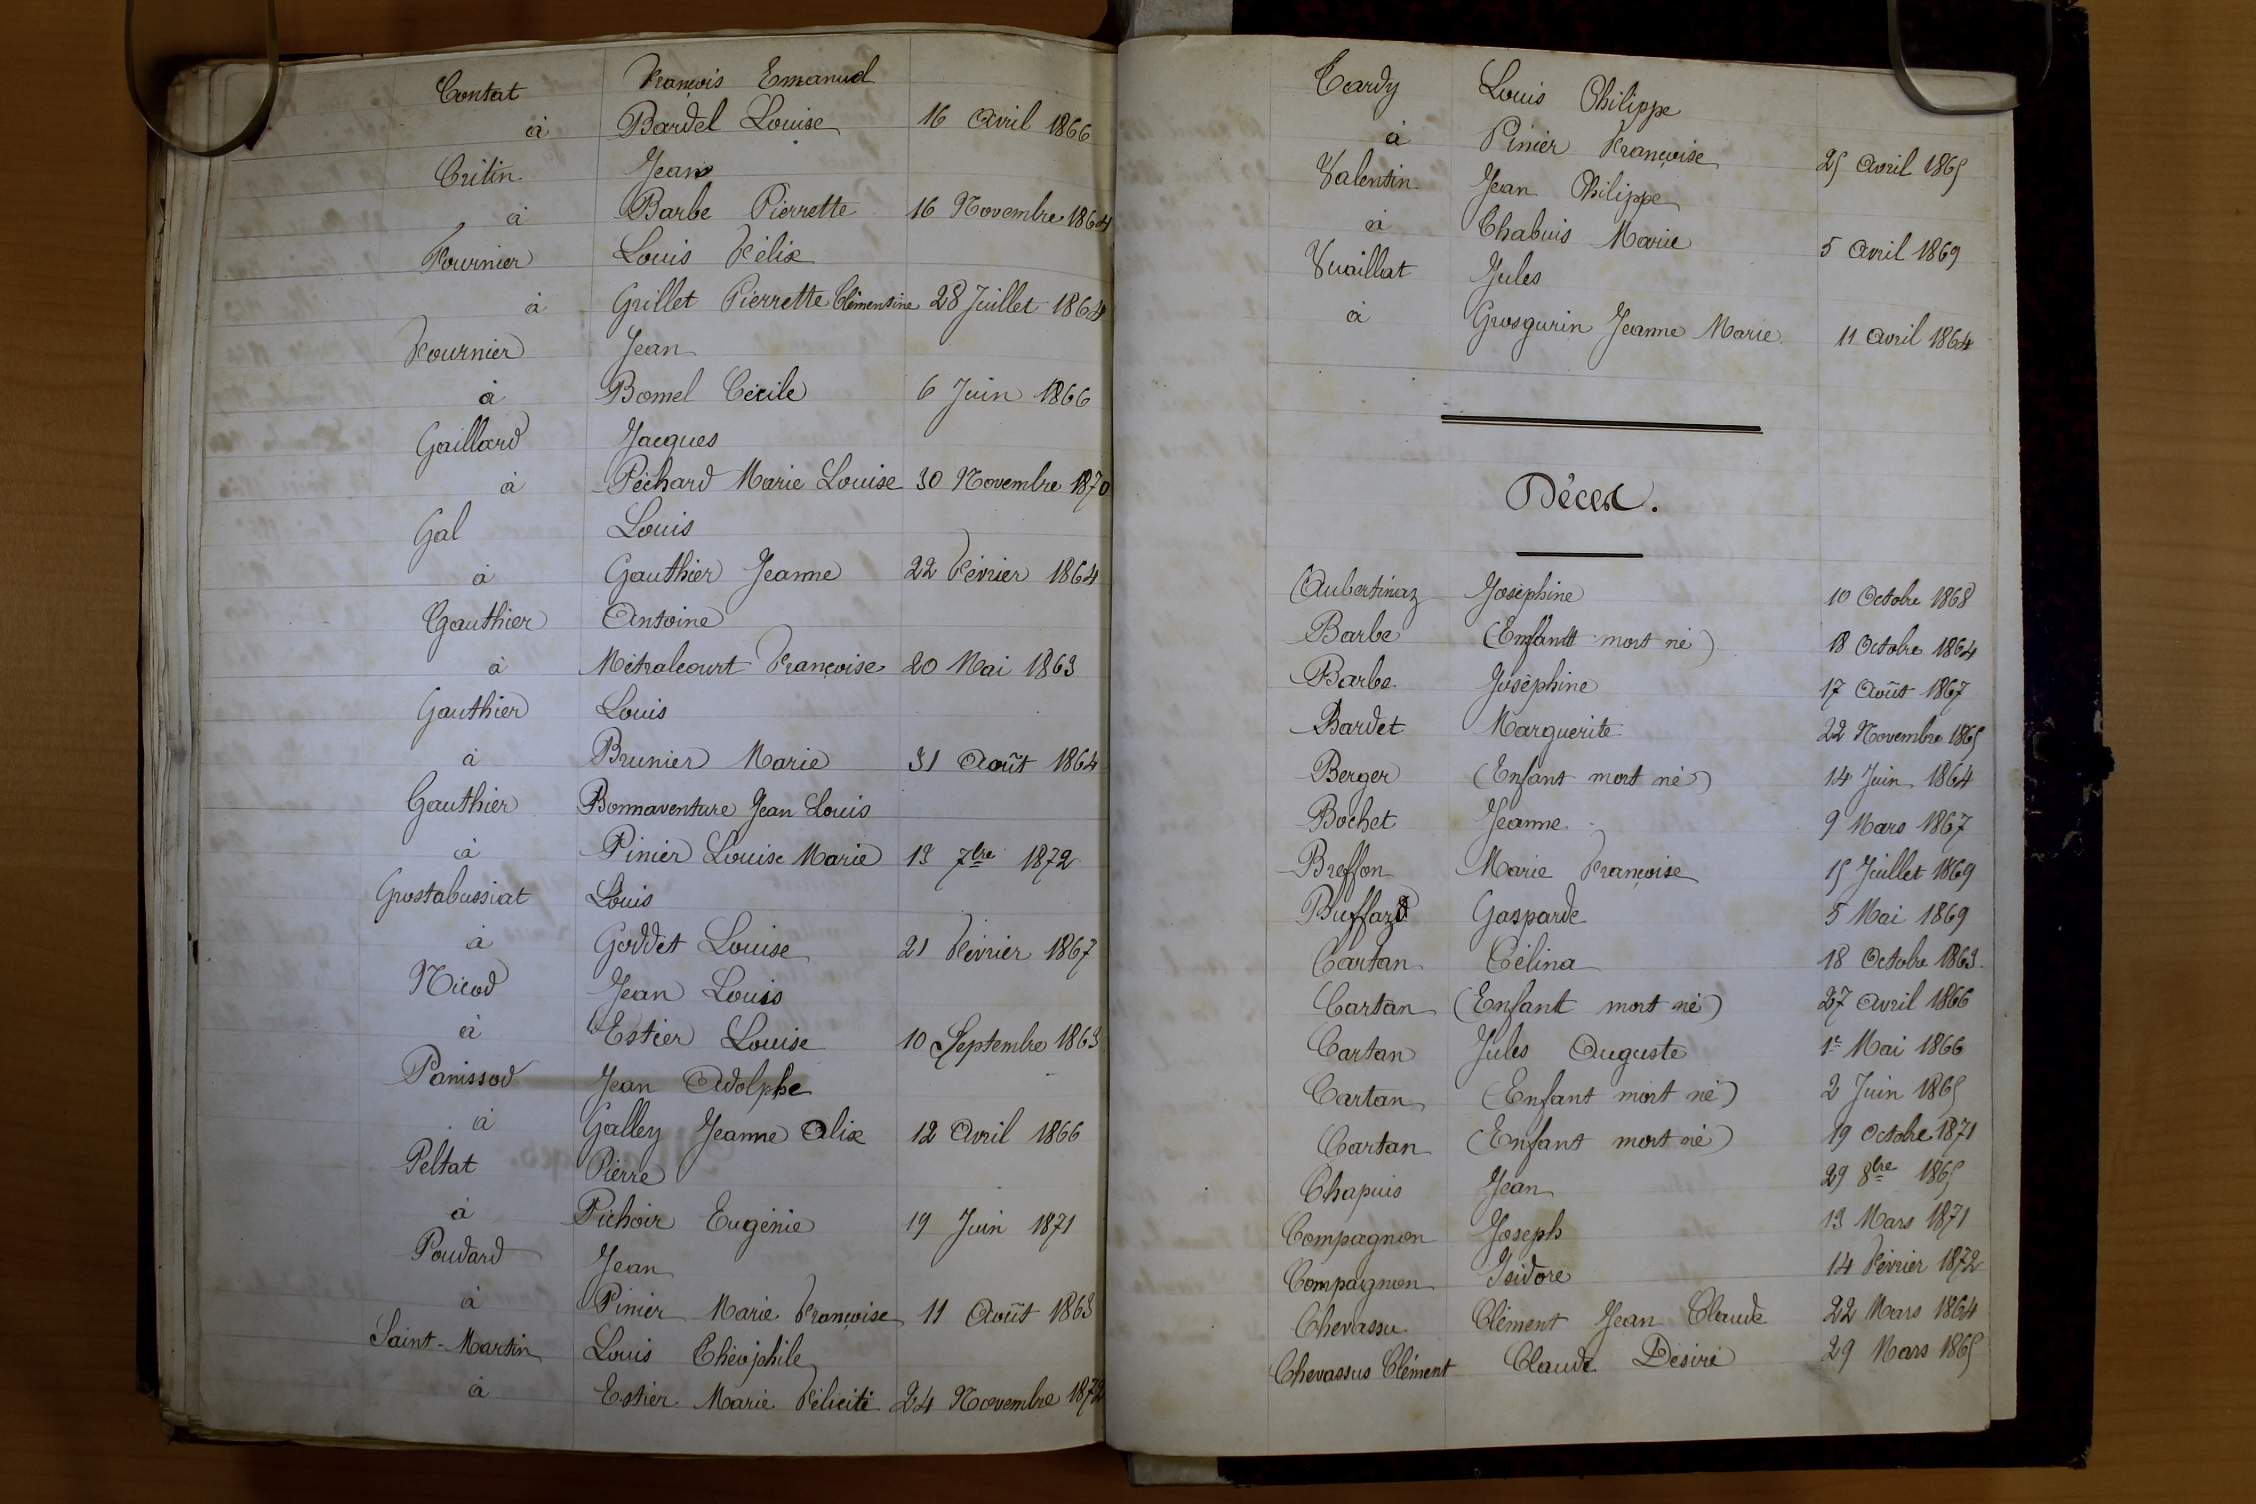 Contat François Emmanuel
à Bardel Louise 16 Avril 1866
Critin Jean
à Barbe Pierrette 16 Novembre 1864
Fournier Louis Félix
à Grillet Pierrette Clémentine 28 Juillet 1864
Fournier Jean
à Bomel Cécile 6 Juin 1866
Gaillard Jacques
à Péchard Marie Louise 30 Novembre 1870
Gal Louis
à Gauthier Jeanne 22 Février 1864
Gauthier Antoine
à Métralcourt Françoise 20 Mai 1863
Gauthier Louis
à Brunier Marie 31 Août 1864
Gauthier Bonnaventure Jean Louis
à Pinier Louise Marie 13 7bre 1872
Grostabussiat Louis
à Goddet Louise 21 Février 1867
Nicod Jean Louis
à Estier Louise 10 Septembre 1863
Panissod Jean Adolphe
à Galley Jeanne Alix 12 Avril 1866
Peltat Pierre
à Pichoir Eugénie 19 Juin 1871
Poudard Jean
à Pinier Marie Françoise 11 Août 1863
Saint-Martin Louis Théophile
à Estier Marie Félicité 24 Novembre 1872
Tardy Louis Philippe
à Pinier Françoise 25 Avril 1865
Valentin Jean Philippe
à Chabuis Marie 5 Avril 1869
Vuaillat Jules
à Grosgurin Jeanne Marie 11 Avril 1864
Décès.
Aubertinaz Joséphine 10 Octobre 1868
Barbe (Enfant mort né) 18 Octobre 1864
Barbe Joséphine 17 Août 1867
Bardet Marguerite 22 Novembre 1865
Berger (Enfant mort né) 14 Juin 1864
Bochet Jeanne 9 Mars 1867
Breffon Marie Françoise 15 Juillet 1869
Buffard Gasparde 5 Mai 1869
Cartan Célina 18 Octobre 1863
Cartan (Enfant mort né) 27 Avril 1866
Cartan Jules Auguste 1er Mai 1866
Cartan (Enfant mort né) 2 Juin 1865
Cartan (Enfant mort né) 19 Octobre 1871
Chapuis Jean 29 8bre 1865
Compagnon Joseph 13 Mars 1871
Compagnon Isidore 14 Février 1872
Chevassu Clément Jean Claude 22 Mars 1864
Chevassus Clément Claude Désiré 29 Mars 1865